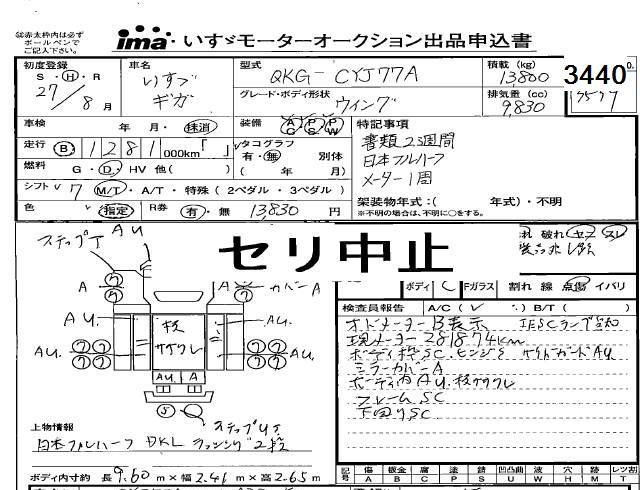 ※赤太枠内は必ず
ボールペンで
ご記入下さい。
ima・いすゞモーターオークション出品申込書
初度登録
S・H・R
27/8月
車名
いすゞ
ギガ
型式
QKG-CYJ77A
グレード・ボディ形状
ウィング
積載 (kg)
13,800
排気量 (cc)
9,830
3440
車検
年 月・抹消
装備 AC PS PW
走行 B 1281 000km「 」
Vタコグラフ
有・無 別体
( 年 月)
燃料
G・D・HV 他( )
シフト V 7 M/T・A/T・特殊(2ペダル・3ペダル)
色 V 指定
R券 有・無 13,830 円
特記事項
書類2.3週間
日本フルハーフ
メーター1周
架装物年式:( 年式)・不明
※不明の場合は、不明に○をする。
セリ中止
破れ ヤケ スレ
ステップ下 AU
A ⑦ ⑦ カバーA
AU 枝 ササクレ AU.
AU. ⑦⑦ ⑦⑦ AU.
⑦⑦ ⑦⑦
AU A
S
ステップ
上物情報
日本フルハーフ DKL ラッシング2段
ボディ内寸約 長9.60m×幅2.41m×高2.65m
ボディ C Fガラス 割れ 線 点傷 イバリ
検査員報告 A/C( ) B/T( )
オドメーターB表示
現メーター281874km
ボディ枠SC. ヒンジS サイドガードAU
ミラーカバーA
ボディ内AU.枝ササクレ
フレームSC
下回りSC
記号 傷 板金 腐 塗 錆 凹凸曲 ワレ 穴 跡 レツ割
A B C P S U W H M T